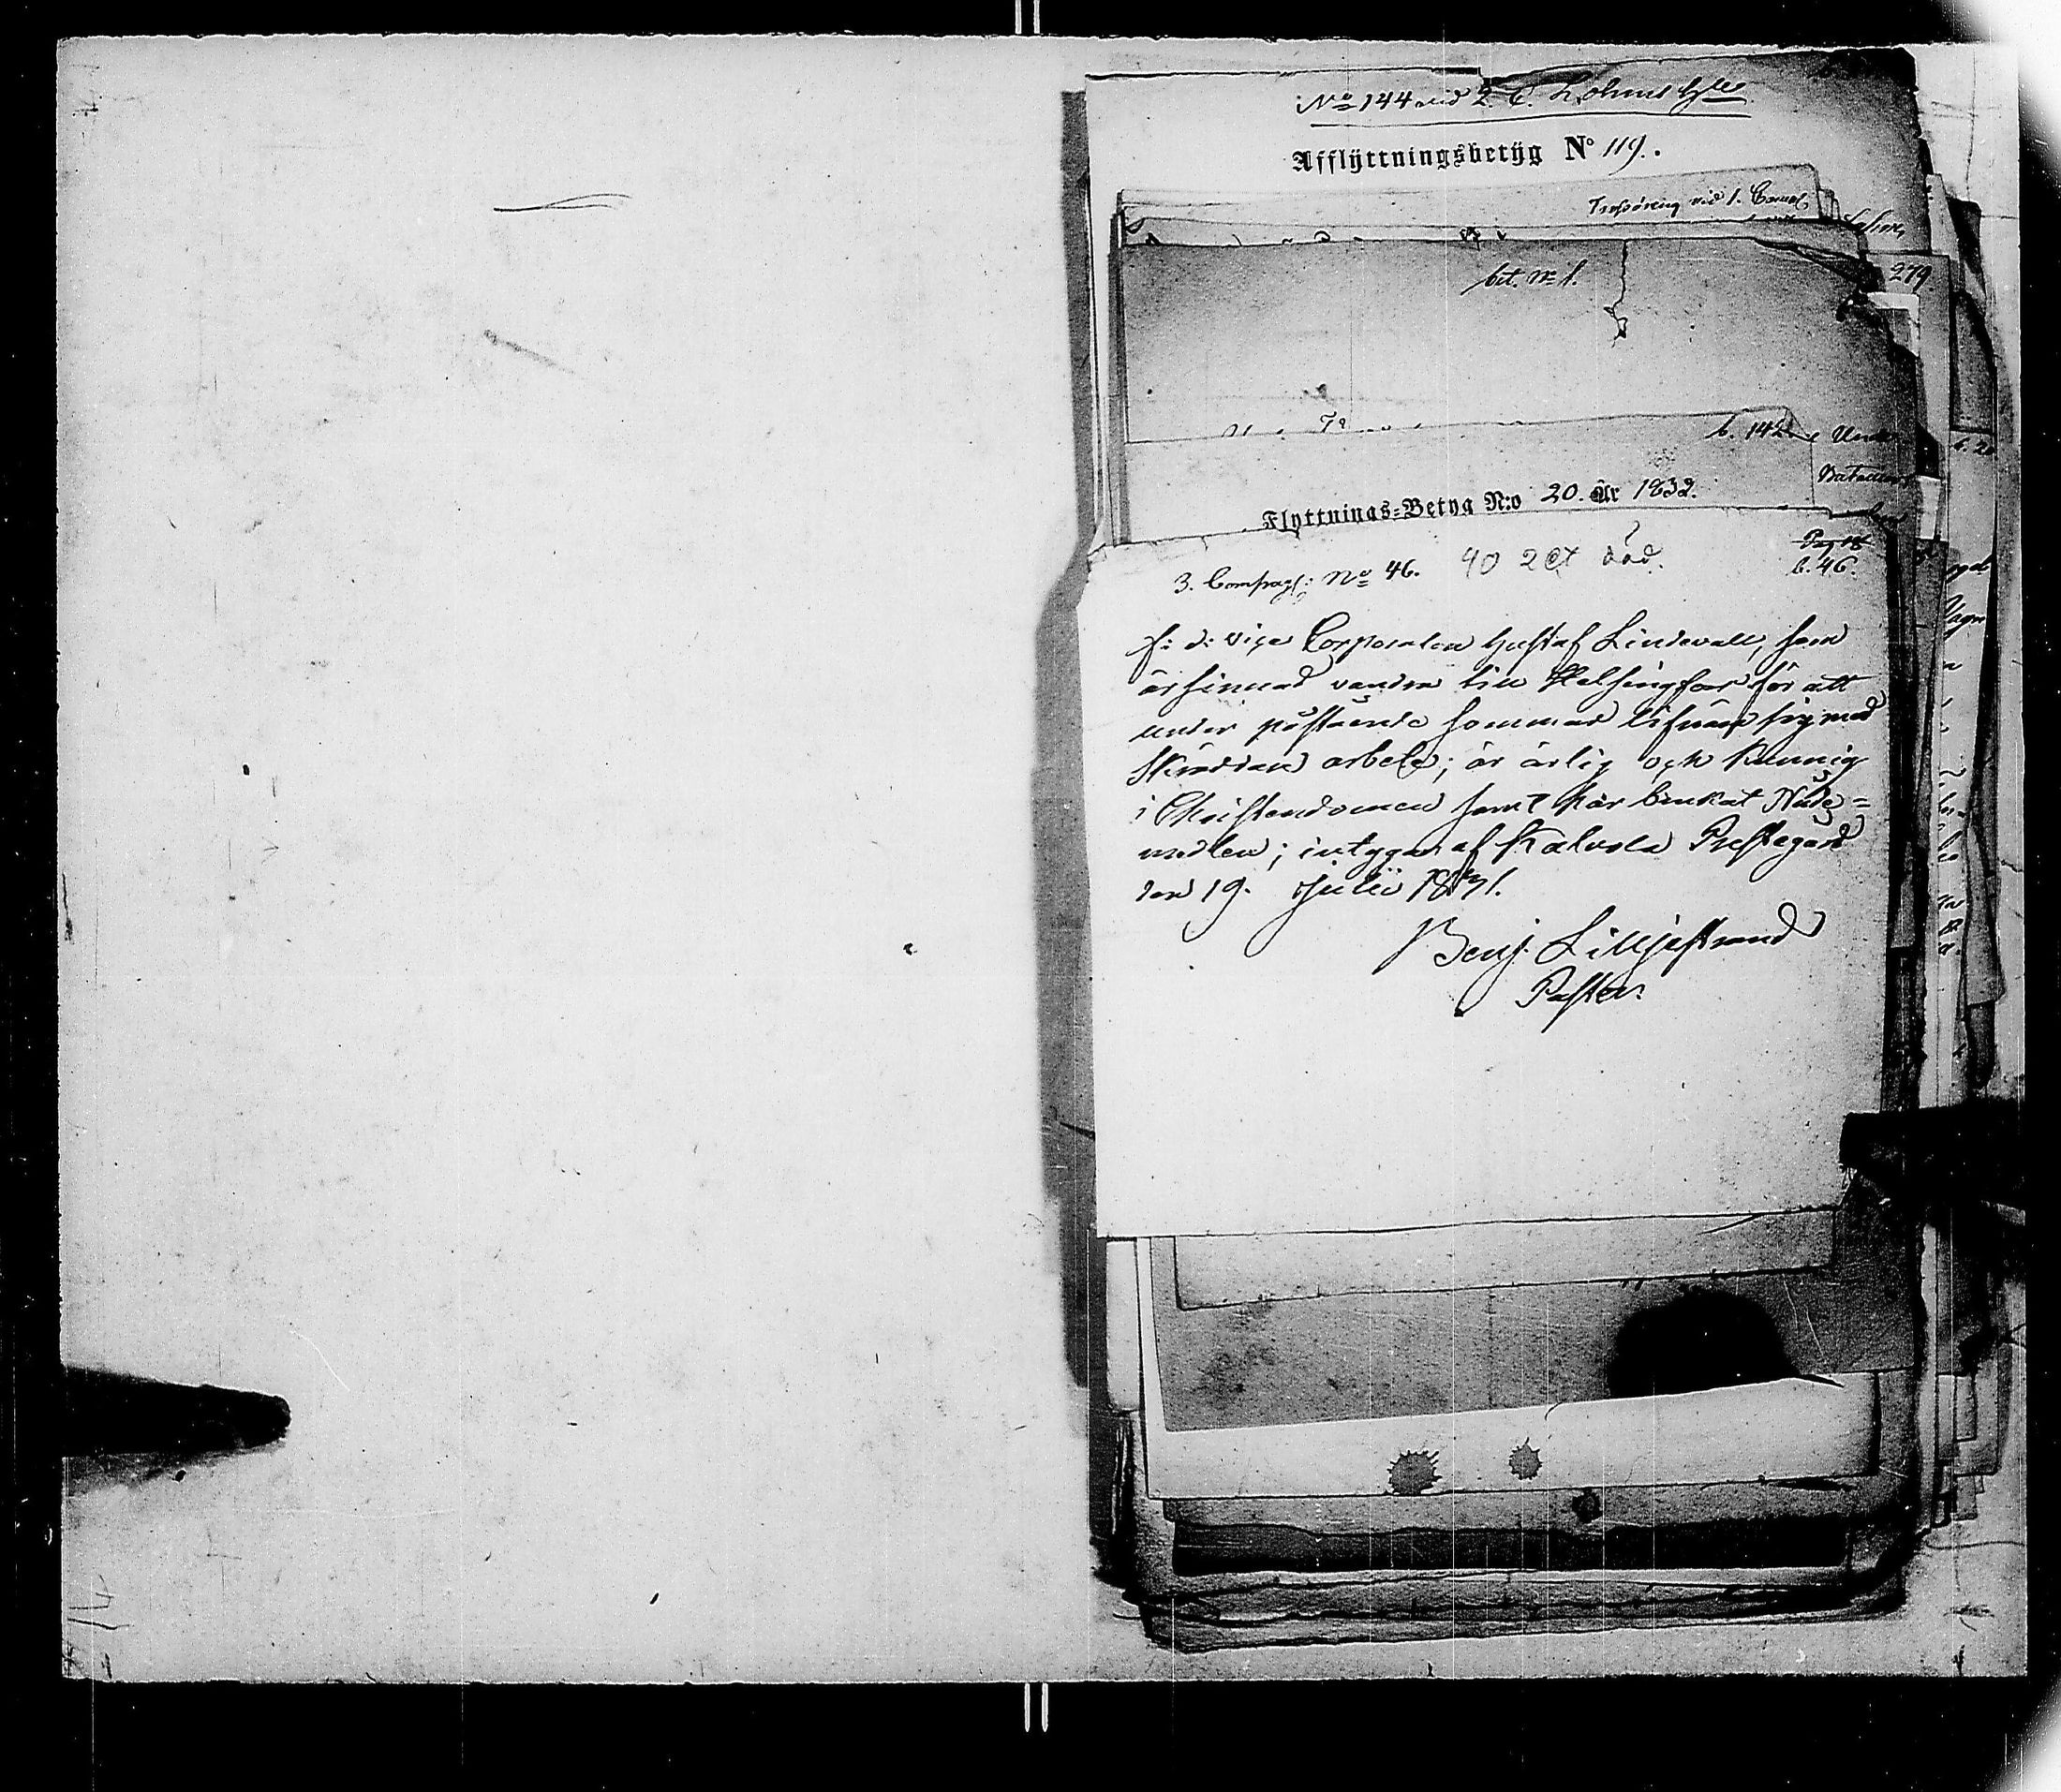 No 144 vid 2 C.
Afflÿttningsbetÿg No 119.
vid 1.
279
bet. No 1.
b. 142
Flyttnings-Betyg N:o 20. År 1832.
3. Compag: No 46. 40 2 Ct död.
Pag 18
b. 46.
f: d: vice Corporalen Gustaf Lindevall, som
är sinnad vandra till Helsingfors för att
under påstående sommar lifnära sig med
Skräddare arbete; är ärlig och kunnig
i Christendomen samt har brukat Nåde=
medlen; intygar af Kalvola Prestegård
den 19. Julii 1831.
Benj. Lilljestrand
Pastor.